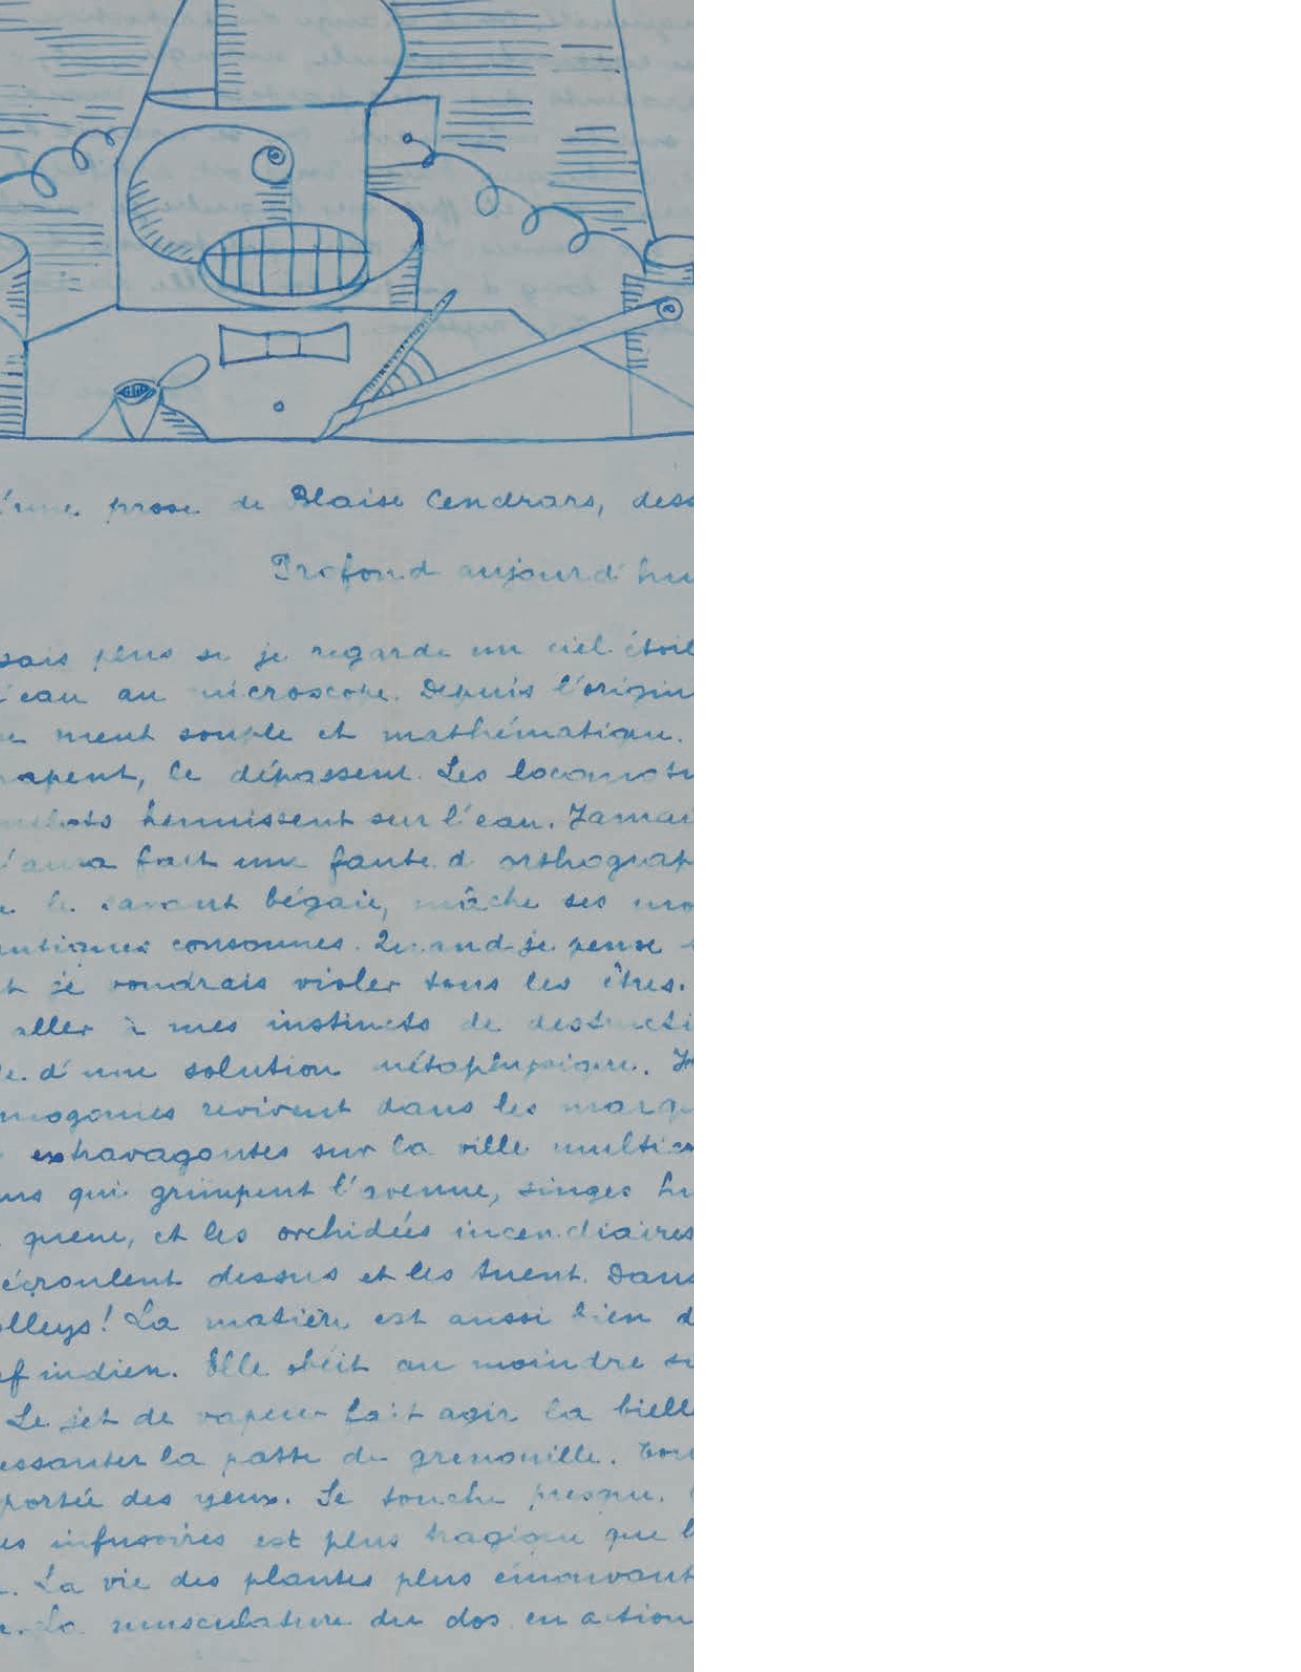 prose de Blaise Cendrars, dess
Profond aujourd'hu
sais plus si je regarde un ciel étoil
l'eau au microscope. Depuis l'origin
ment souple et mathématique.
apent, le dépassent. Les locomoti
hennissent sur l'eau. Jamai
n'aura fait une faute d'orthograp
le savant bégaie, mâche ses mo
consonnes. Quand je pense
je voudrais violer tous les êtres.
aller à mes instincts de destructi
d'une solution métaphysique. J
mogonies revivent dans les marq
extravagantes sur la ville multi
qui grimpent l'avenue, singes hu
queue, et les orchidées incendiaires
écroulent dessus et les tuent. Dans
olleys! La matière est aussi bien d
ef indien. Elle obéit au moindre si
Le jet de vapeur fait agir la biell
essauter la patte de grenouille. Tou
portée des yeux. Se touche presque.
es infusoires est plus tragique que l
La vie des plantes plus émouvant
La musculature du dos en action